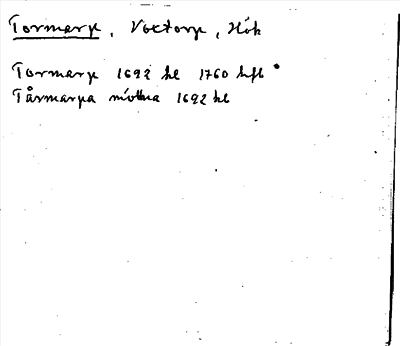 Tormarp, Voxtorp, Hök
Tormarp 1692 hl 1760 hfl
Tårmarpa mölla 1692 hl